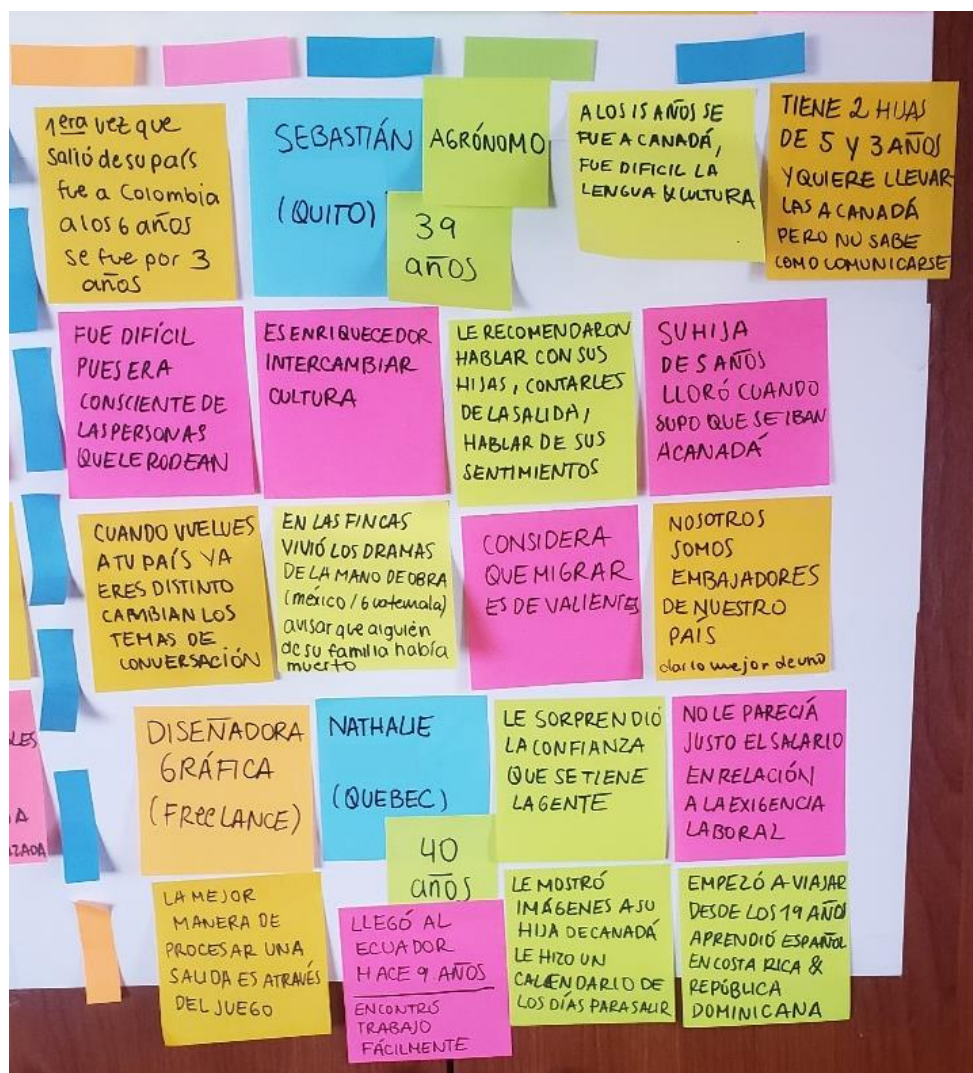 1era vez que
salió de su país
fue a Colombia
a los 6 años
se fue por 3
años
SEBASTIÁN
(QUITO)
AGRÓNOMO
39
años
A LOS 15 AÑOS SE
FUE A CANADÁ,
FUE DIFICIL LA
LENGUA & CULTURA
TIENE 2 HIJAS
DE 5 Y 3 AÑOS
Y QUIERE LLEVAR
LAS A CANADÁ
PERO NO SABE
COMO COMUNICARSE
FUE DIFÍCIL
PUES ERA
CONSCIENTE DE
LAS PERSONAS
QUE LE RODEAN
ES ENRIQUECEDOR
INTERCAMBIAR
CULTURA
LE RECOMENDARON
HABLAR CON SUS
HIJAS, CONTARLES
DE LA SALIDA,
HABLAR DE SUS
SENTIMIENTOS
SU HIJA
DE 5 AÑOS
LLORÓ CUANDO
SUPO QUE SE IBAN
A CANADÁ
CUANDO VUELVES
A TU PAÍS YA
ERES DISTINTO
CAMBIAN LOS
TEMAS DE
CONVERSACIÓN
EN LAS FINCAS
VIVIÓ LOS DRAMAS
DE LA MANO DE OBRA
(mexico / Guatemala)
avisar que alguién
de su familia había
muerto
CONSIDERA
QUE MIGRAR
ES DE VALIENTES
NOSOTROS
SOMOS
EMBAJADORES
DE NUESTRO
PAÍS
dar lo mejor de uno
LES
A
ZADA
DISEÑADORA
GRÁFICA
(FREELANCE)
NATHALIE
(QUEBEC)
40
años
LE SORPRENDIÓ
LA CONFIANZA
QUE SE TIENE
LA GENTE
NO LE PARECÍA
JUSTO EL SALARIO
EN RELACIÓN
A LA EXIGENCIA
LABORAL
LA MEJOR
MANERA DE
PROCESAR UNA
SALIDA ES ATRAVÉS
DEL JUEGO
LLEGÓ AL
ECUADOR
HACE 9 AÑOS
ENCONTRÓ
TRABAJO
FÁCILMENTE
LE MOSTRÓ
IMÁGENES A SU
HIJA DE CANADÁ
LE HIZO UN
CALENDARIO DE
LOS DÍAS PARA SALIR
EMPEZÓ A VIAJAR
DESDE LOS 19 AÑOS
APRENDIÓ ESPAÑOL
EN COSTA RICA &
REPÚBLICA
DOMINICANA